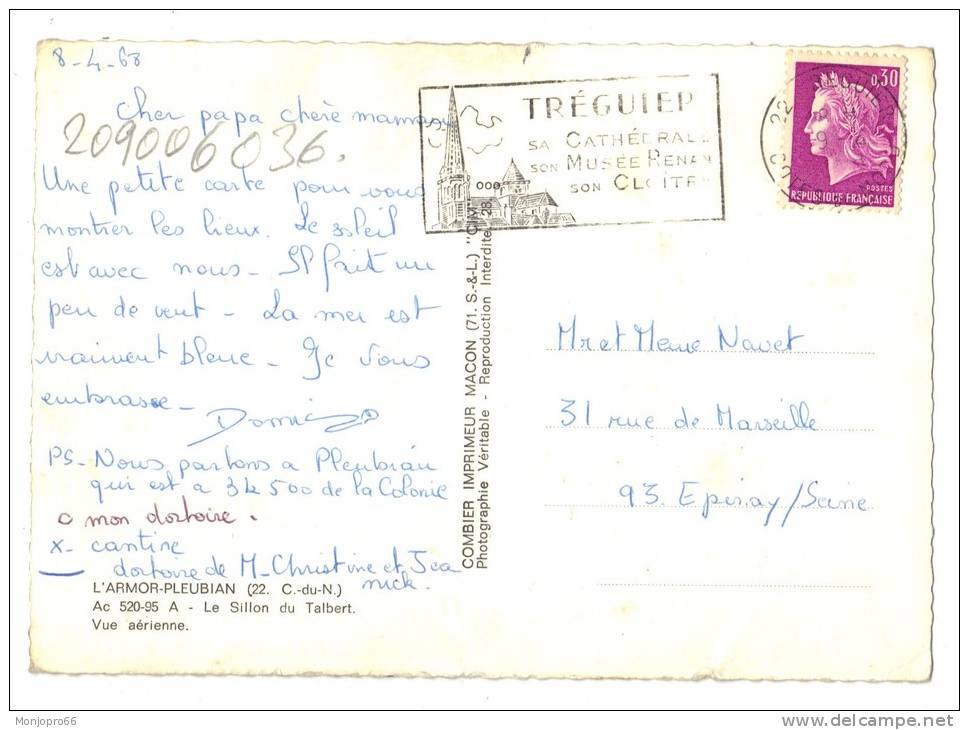 8-4-68
Cher papa chère maman
209006036.
Une petite carte pour vous
montrer les lieux. Le soleil
est avec nous - Il fait un
peu de vent - La mer est
vraiment bleue - Je vous
embrasse -
PS - Nous partons a Pleubian
qui est a 3k 500 de la Colonie
o mon dortoire.
x - cantine
dortoire de M-Christine et Jea
nick.
L'ARMOR-PLEUBIAN (22. C.-du-N.)
Ac 520-95 A - Le Sillon du Talbert.
Vue aérienne.
COMBIER IMPRIMEUR MACON (71. S.-&-L.) "CIM"
Photographie Véritable - Reproduction Interdite 28
TRÉGUIER
SA CATHÉDRALE
SON MUSÉE RENAN
SON CLOÎTR
0,30
POSTES
REPUBLIQUE FRANÇAISE
Mr et Mme Navet
31 rue de Marseille
93. Epinay/Seine
Monjopro66
www.delcampe.net